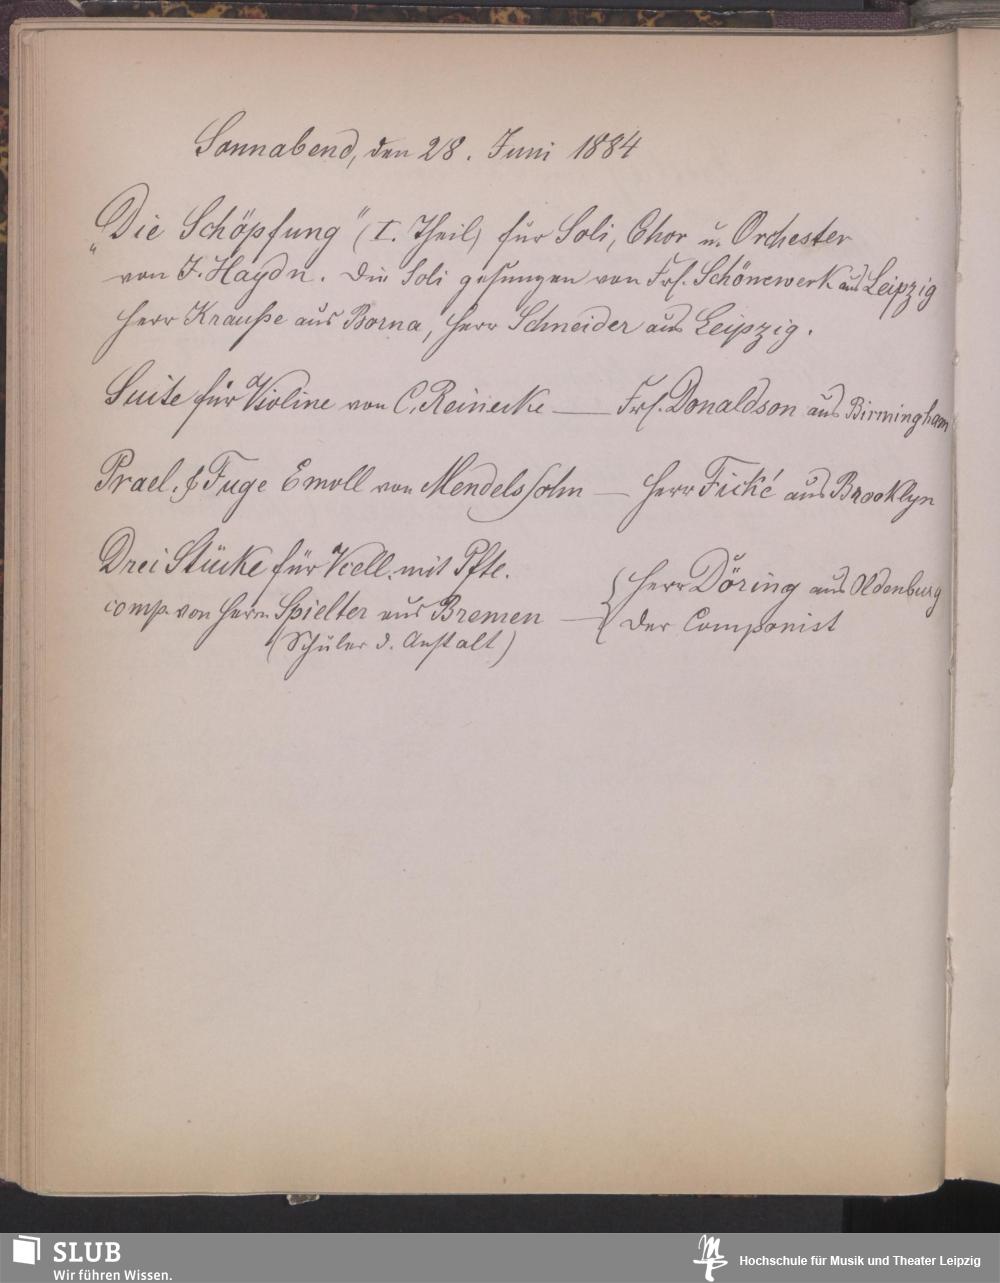 Sonnabend, den 28. Juni 1884
„Die Schöpfung" (I. Theil) für Soli, Chor u. Orchester
von J. Haydn. Die Soli gesungen von Frl. Schönewerk aus Leipzig
Herr Krauße aus Borna, Herr Schneider aus Leipzig.
Suite für Violine von C. Reinecke — Frl. Donaldson aus Birmingham
Prael. & Fuge Emoll von Mendelssohn — Herr Fické aus Brooklyn
Drei Stücke für Vcell. mit Pfte.
comp. von Herrn Spielter aus Bremen —
(Schüler d. Anstalt)
Herr Döring aus Oldenburg
Der Componist
SLUB
Wir führen Wissen.
Hochschule für Musik und Theater Leipzig